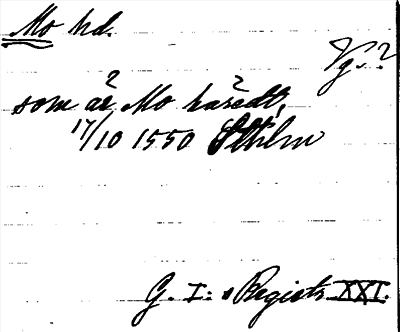 Mo hd.
Vg.?
som är Mo häredt,
17/10 1550 Sthlm
G. I:s Registr. XXI.